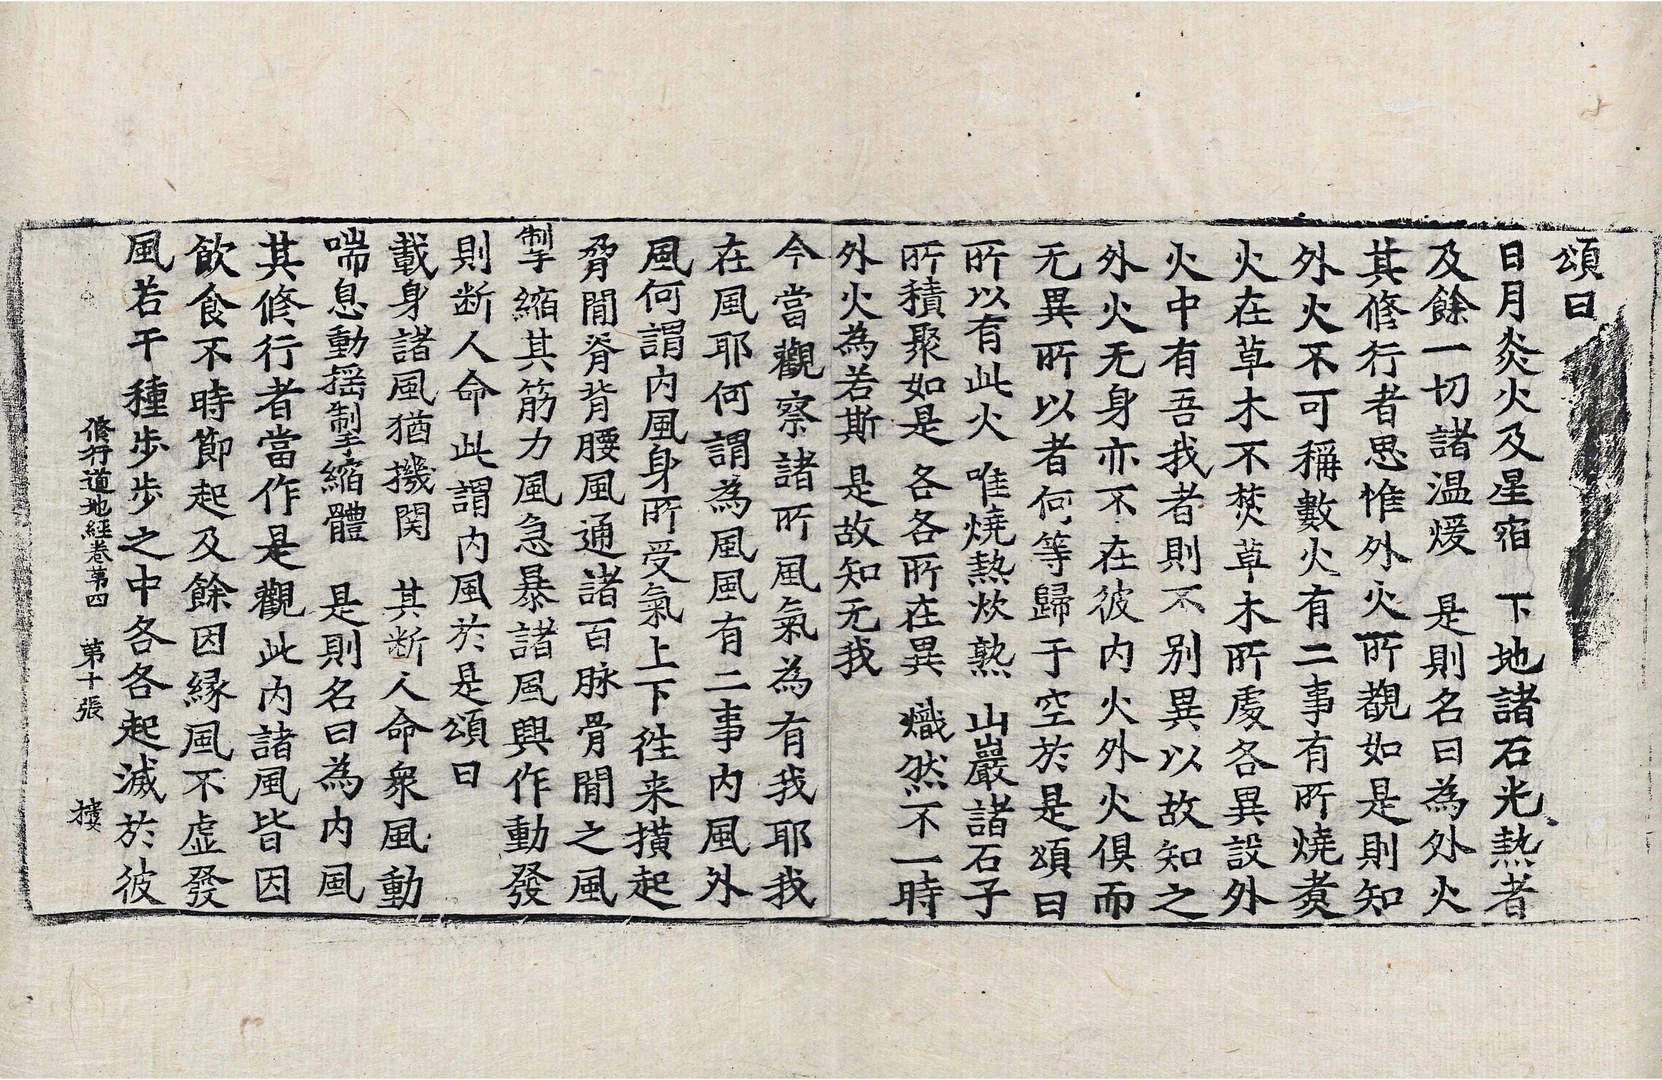 頌曰
日月炎火及星宿　下地諸石光熱者
及餘一切諸温煖　是則名曰為外火
其修行者思惟外火所觀如是則知
外火不可稱數火有二事有所燒煑
火在草木不焚草木所處各異設外
火中有吾我者則不別異以故知之
外火无身亦不在彼内火外火俱而
无異所以者何等歸于空於是頌曰
所以有此火　唯燒熱炊熟　山巖諸石子
所積聚如是　各各所在異　熾然不一時
外火為若斯　是故知无我
今當觀察諸所風氣為有我耶我
在風耶何謂為風風有二事内風外
風何謂内風身所受氣上下往来撗起
脅間脊背腰風通諸百脉骨間之風
掣縮其筋力風急暴諸風興作動發
則断人命此謂内風於是頌曰
載身諸風猶㧡関　其断人命衆風動
喘息動揺掣縮體　是則名曰為内風
其修行者當作是觀此内諸風皆因
飲食不時節起及餘因縁風不虚發
風若干種步步之中各各起滅於彼
修行道地経卷第四　第十張　樓